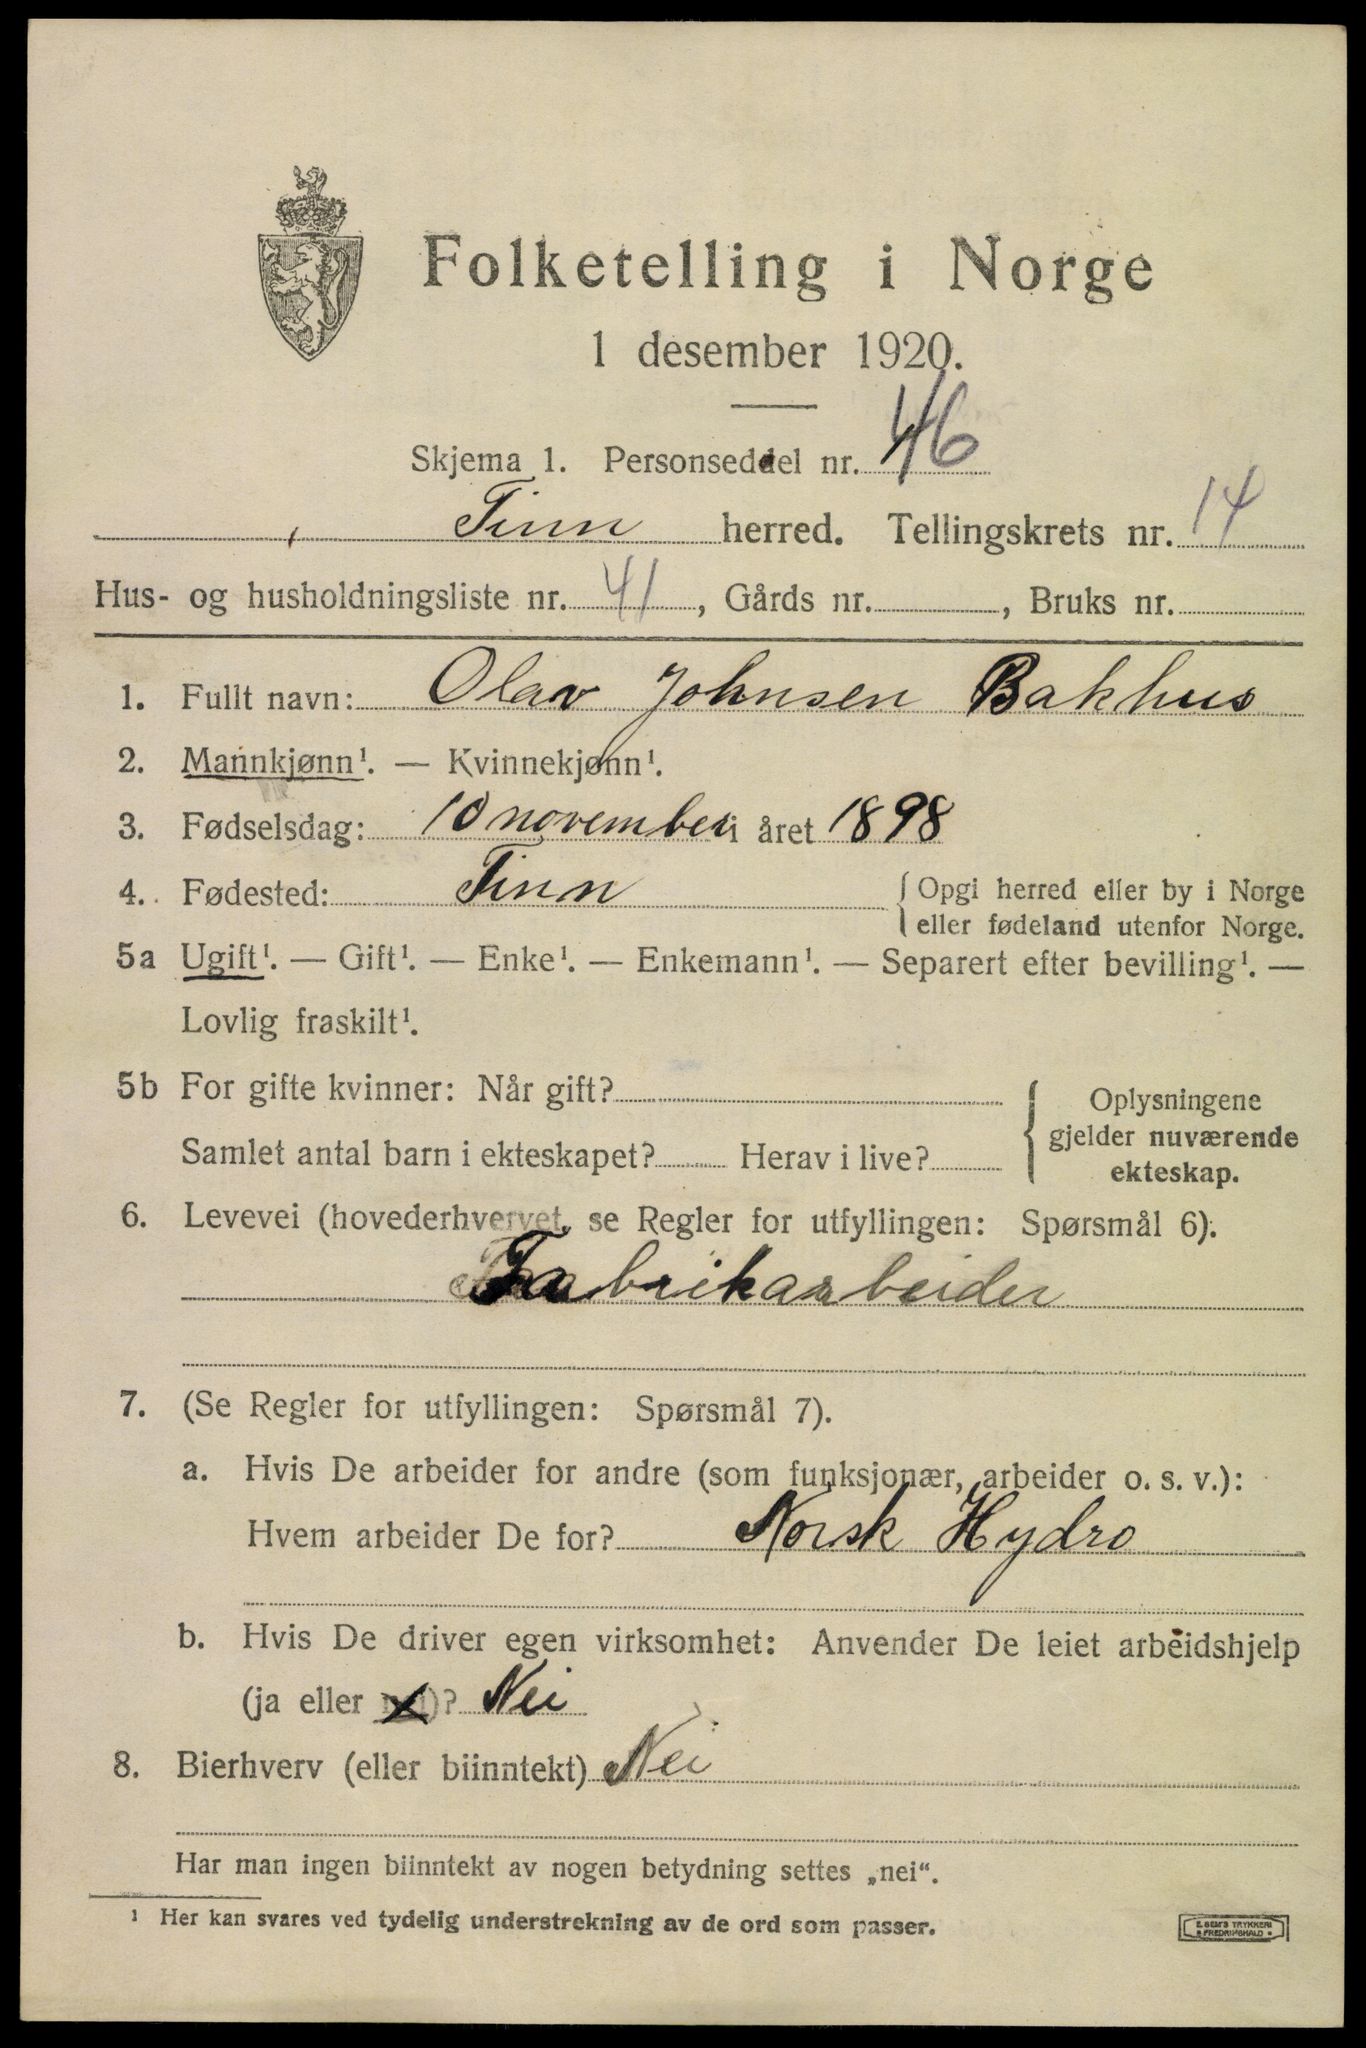 Folketelling i Norge
1 desember 1920.
Skjema 1. Personseddel nr. 46
Tinn herred. Tellingskrets nr. 14
Hus- og husholdningsliste nr. 41, Gårds nr. , Bruks nr.
1. Fullt navn: Olav Johnsen Bakhus
2. Mannkjønn¹. — Kvinnekjønn¹.
3. Fødselsdag: 10 november i året 1898
4. Fødested: Tinn { Opgi herred eller by i Norge
eller fødeland utenfor Norge.
5a Ugift¹. — Gift¹. — Enke¹. — Enkemann¹. — Separert efter bevilling¹. —
Lovlig fraskilt¹.
5b For gifte kvinner: Når gift?
Samlet antal barn i ekteskapet? Herav i live?
Oplysningene
gjelder nuværende
ekteskap.
6. Levevei (hovederhvervet, se Regler for utfyllingen: Spørsmål 6).
Fabrikarbeider
7. (Se Regler for utfyllingen: Spørsmål 7).
a. Hvis De arbeider for andre (som funksjonær, arbeider o. s. v.):
Hvem arbeider De for? Norsk Hydro
b. Hvis De driver egen virksomhet: Anvender De leiet arbeidshjelp
(ja eller nei)? Nei
8. Bierhverv (eller biinntekt) Nei
Har man ingen biinntekt av nogen betydning settes „nei“.
¹ Her kan svares ved tydelig understrekning av de ord som passer.
E. SEM'S TRYKKERI
FREDRIKSHALD